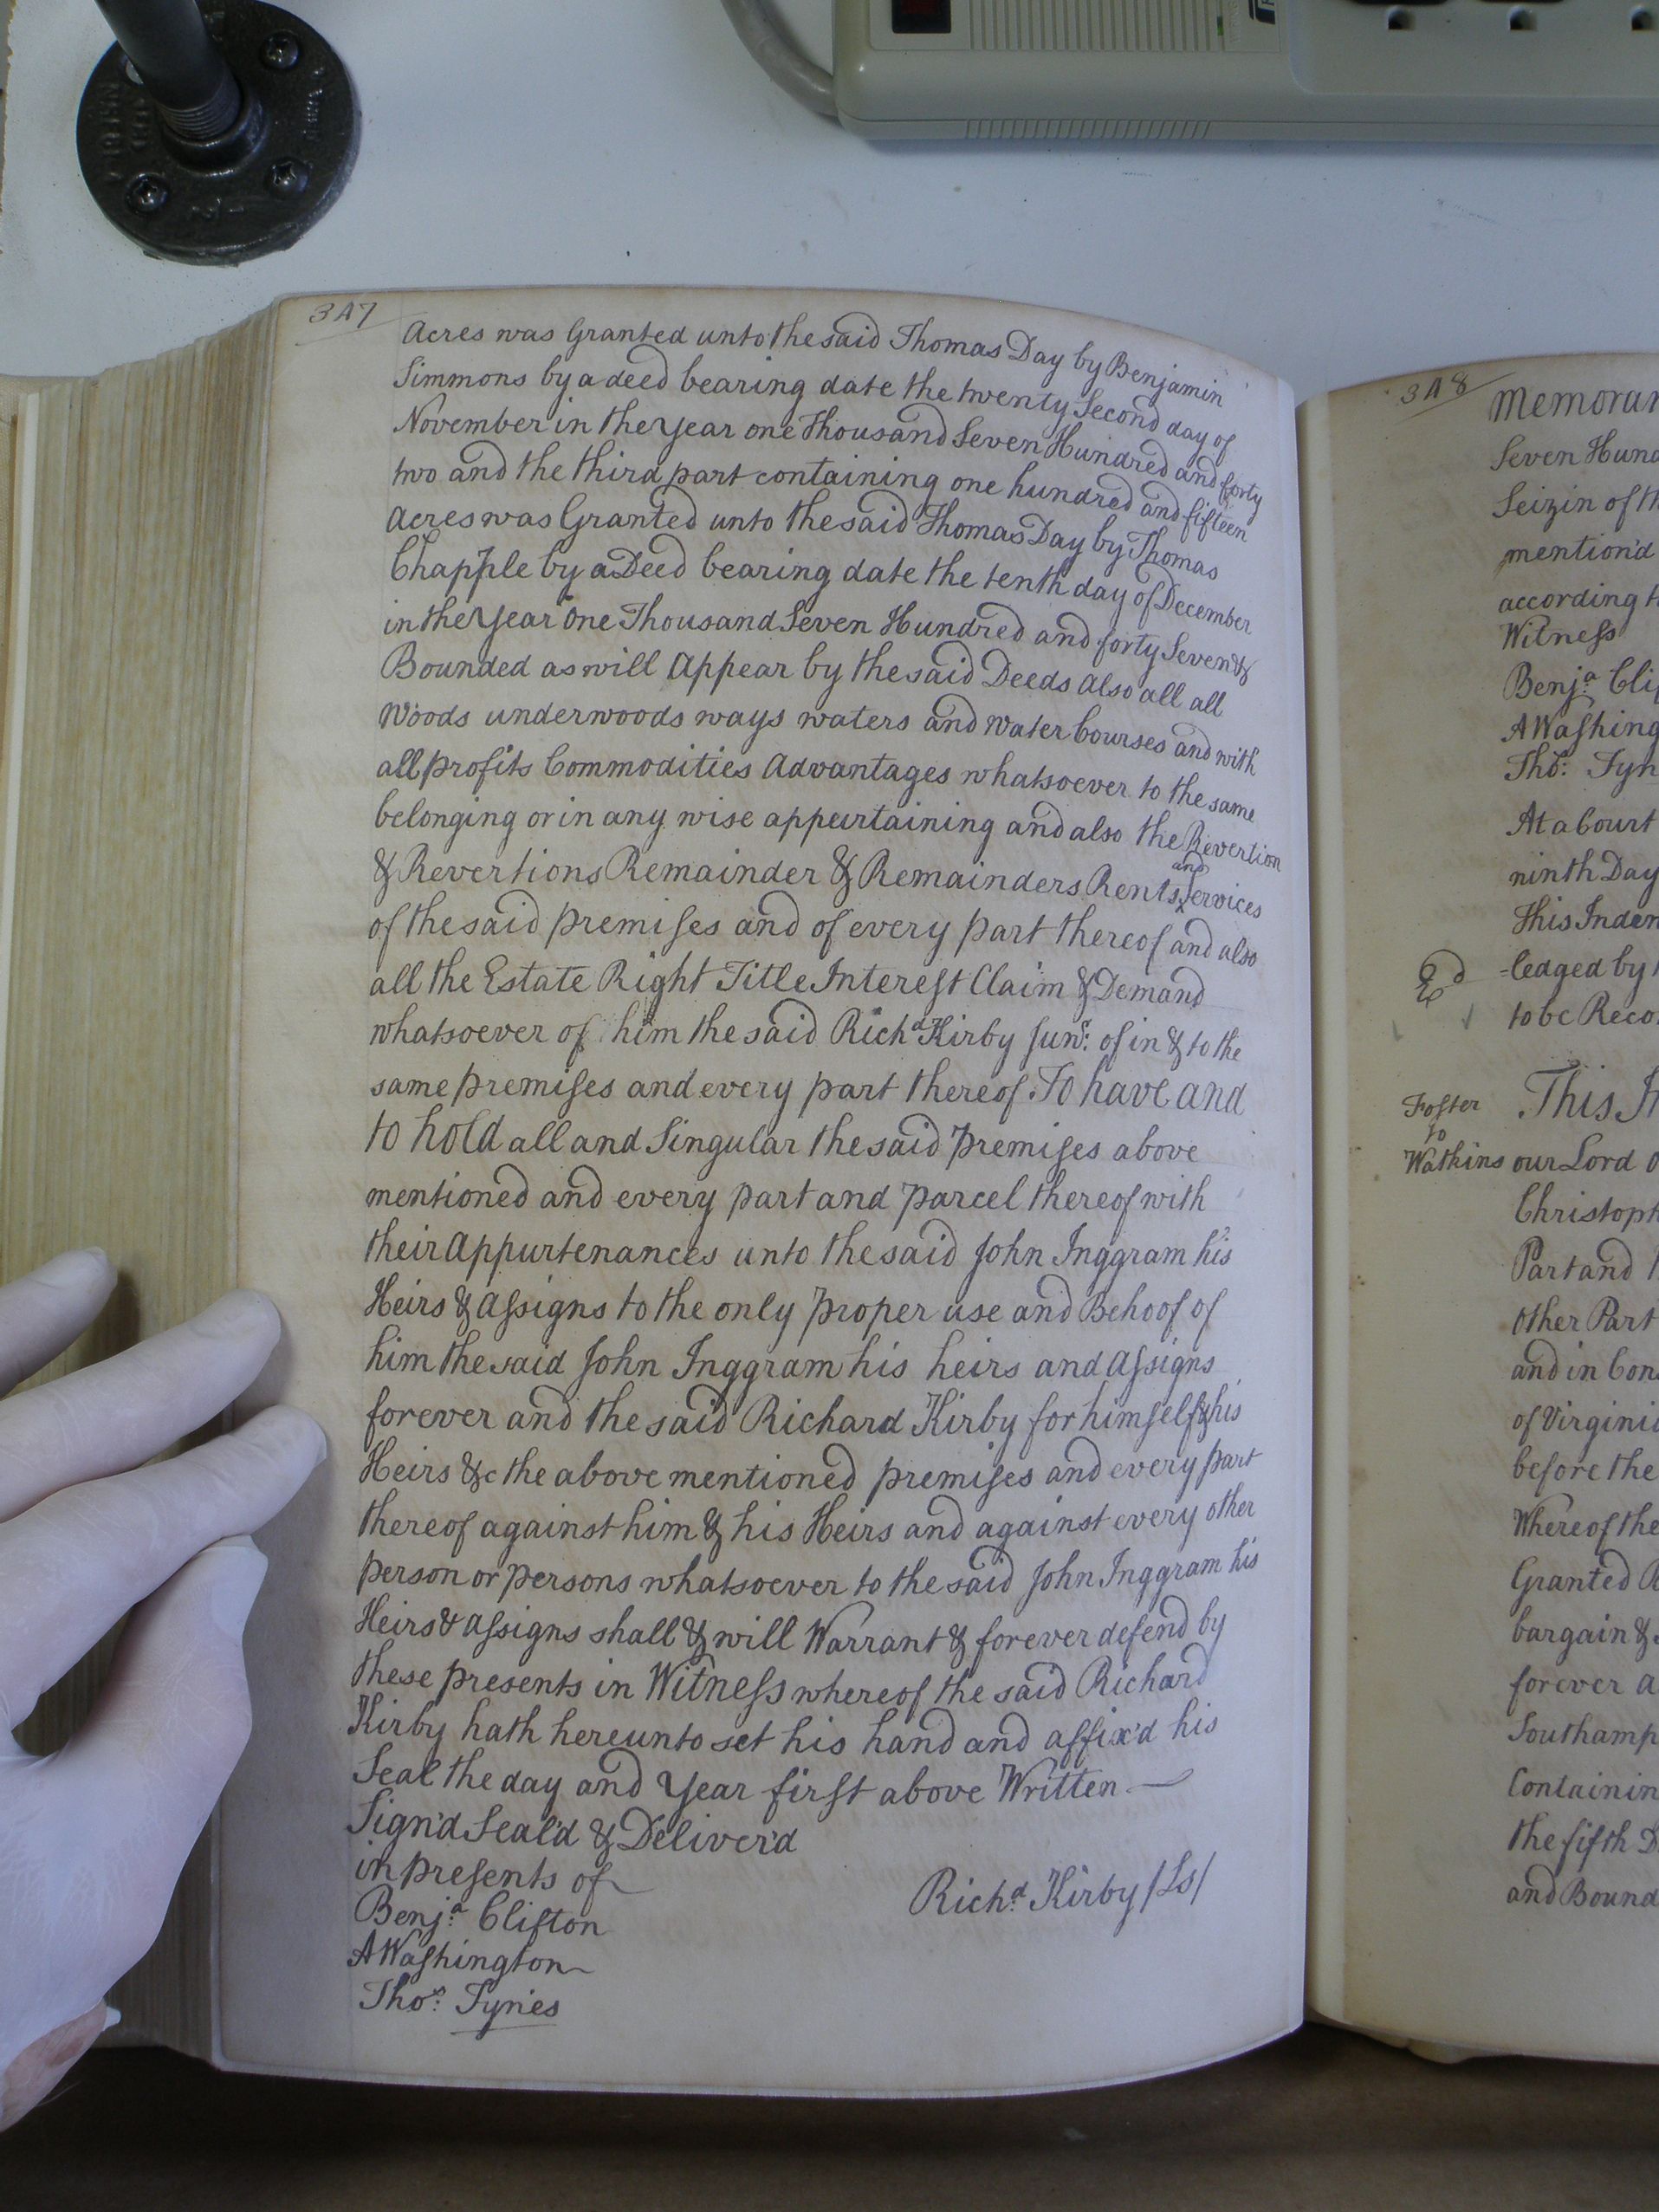 347
Acres was Granted unto the said Thomas Day by Benjamin
Simmons by a deed bearing date the twenty Second day of
November in the Year one Thousand Seven Hundred and forty
two and the third part containing one hundred and fifteen
Acres was Granted unto the said Thomas Day by Thomas
Chapple by a Deed bearing date the tenth day of December
in the Year One Thousand Seven Hundred and forty Seven &
Bounded as will Appear by the said Deeds Also all all
Woods underwoods ways waters and Water Courses and with
all profits Commodities Advantages whatsoever to the same
belonging or in any wise appurtaining and also the Revertion
& Revertions Remainder & Remainders Rents and Services
of the said premises and of every part thereof and also
all the Estate Right Title Interest Claim & Demand
whatsoever of him the said Richd Kirby Junr: of in & to the
same premises and every part thereof To have and
to hold all and Singular the said premises above
mentioned and every part and parcel thereof with
their Appurtenances unto the said John Inggram his
Heirs & Assigns to the only proper use and Behoof of
him the said John Inggram his heirs and Assigns
forever and the said Richard Kirby for himself & his
Heirs &c the above mentioned premises and every part
thereof against him & his Heirs and against every other
person or persons whatsoever to the said John Inggram his
Heirs & Assigns shall & will Warrant & forever defend by
these presents in Witness whereof the said Richard
Kirby hath hereunto set his hand and affix'd his
Seal the day and Year first above Written
Sign'd Seal'd & Deliver'd
in presents of
Richd. Kirby /Ls/
Benja. Clifton
A Washington
Thos. Tynes
348
Memoran
Seven Hund
Seizin of th
mention'd
according t
Witness
Benja. Clif
A Washing
Thos: Tyn
At a Court
ninth Day
This Inden
=ledged by
to be Reco
Foster
to
Watkins
This In
our Lord o
Christoph
Part and
Other Part
and in Con
of Virginia
before the
Whereof the
Granted
bargain &
forever a
Southamp
Containin
the fifth D
and Bound